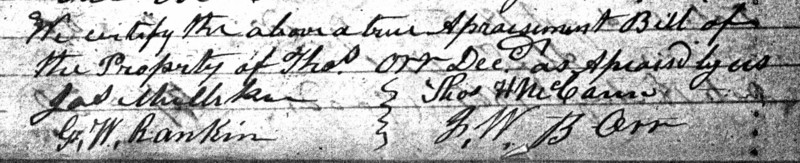 We certify the above a true Apraisement Bill of
the Property of Thos. Orr Decd. as Apraisd by us
Jas Millikin } Thos H McCann
G. W. Rankin } J. W. B Orr